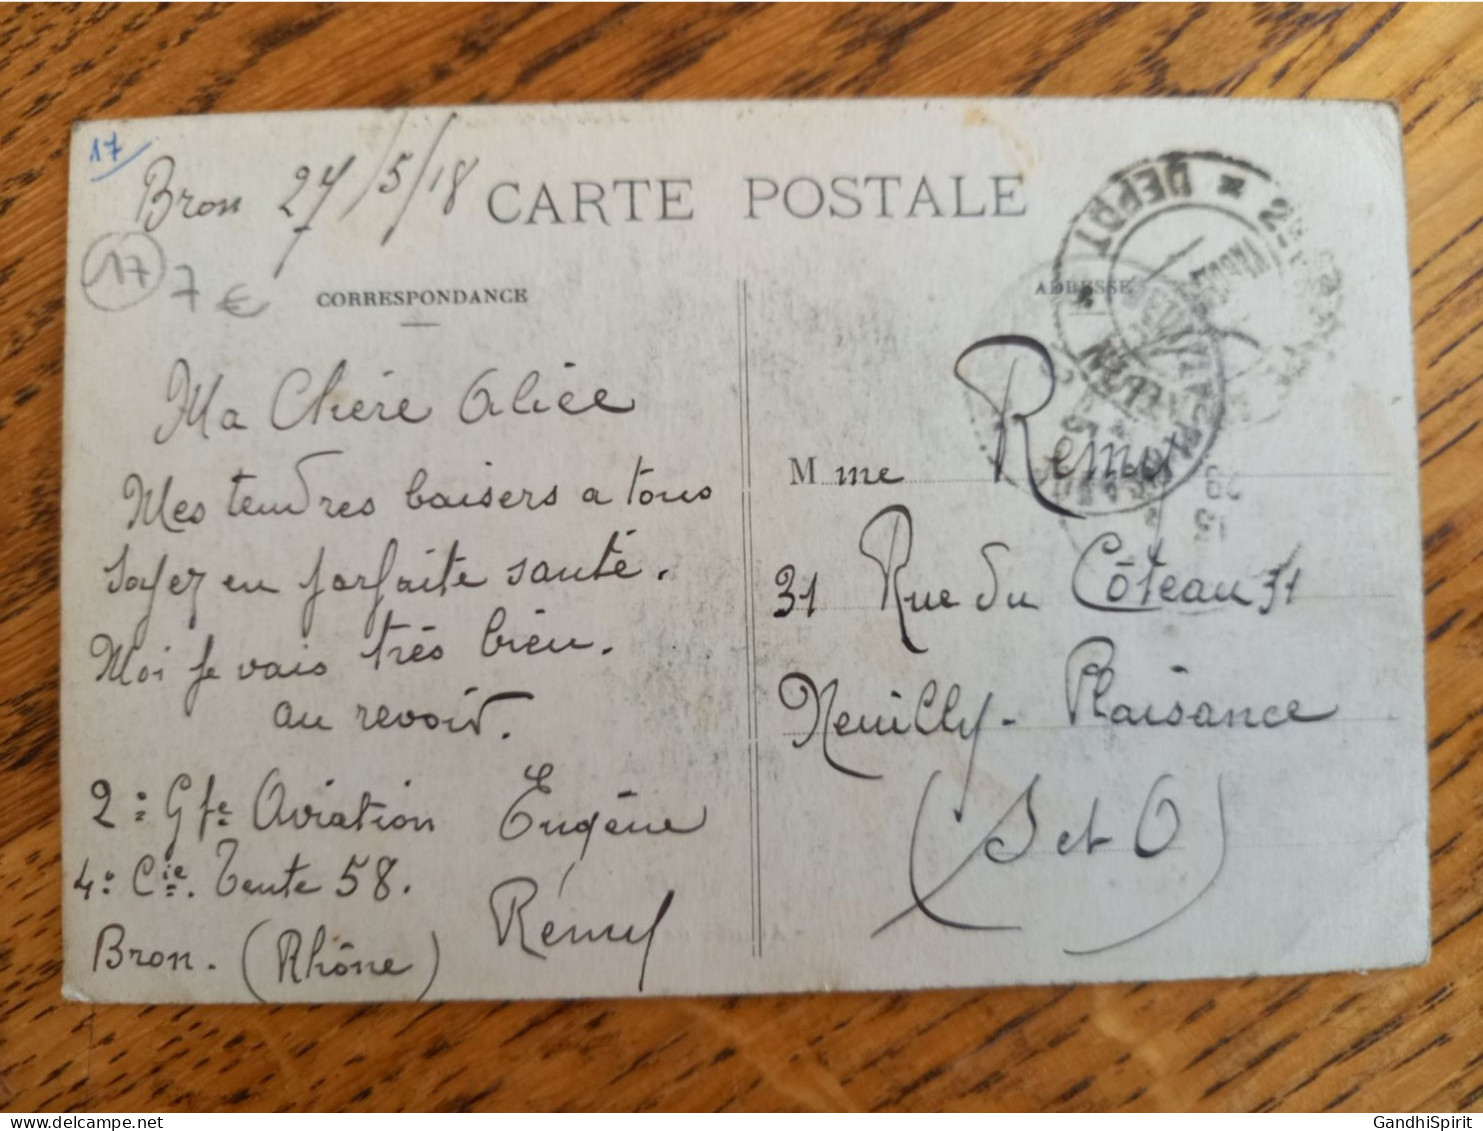 17
Bron 27/5/18
CARTE POSTALE
17 7 €
CORRESPONDANCE
Ma Chère Alice
Mes tendres baisers a tous
soyez en parfaite santé.
Moi je vais très bien.
au revoir.
2e Gpe Aviation Eugène
4e Cie. Tente 58. Rémy
Bron. (Rhône)
DEPART
ADRESSE
Mme Remy
31 Rue du Côteau 31
Neuilly-Plaisance
(S et O)
GandhiSpirit